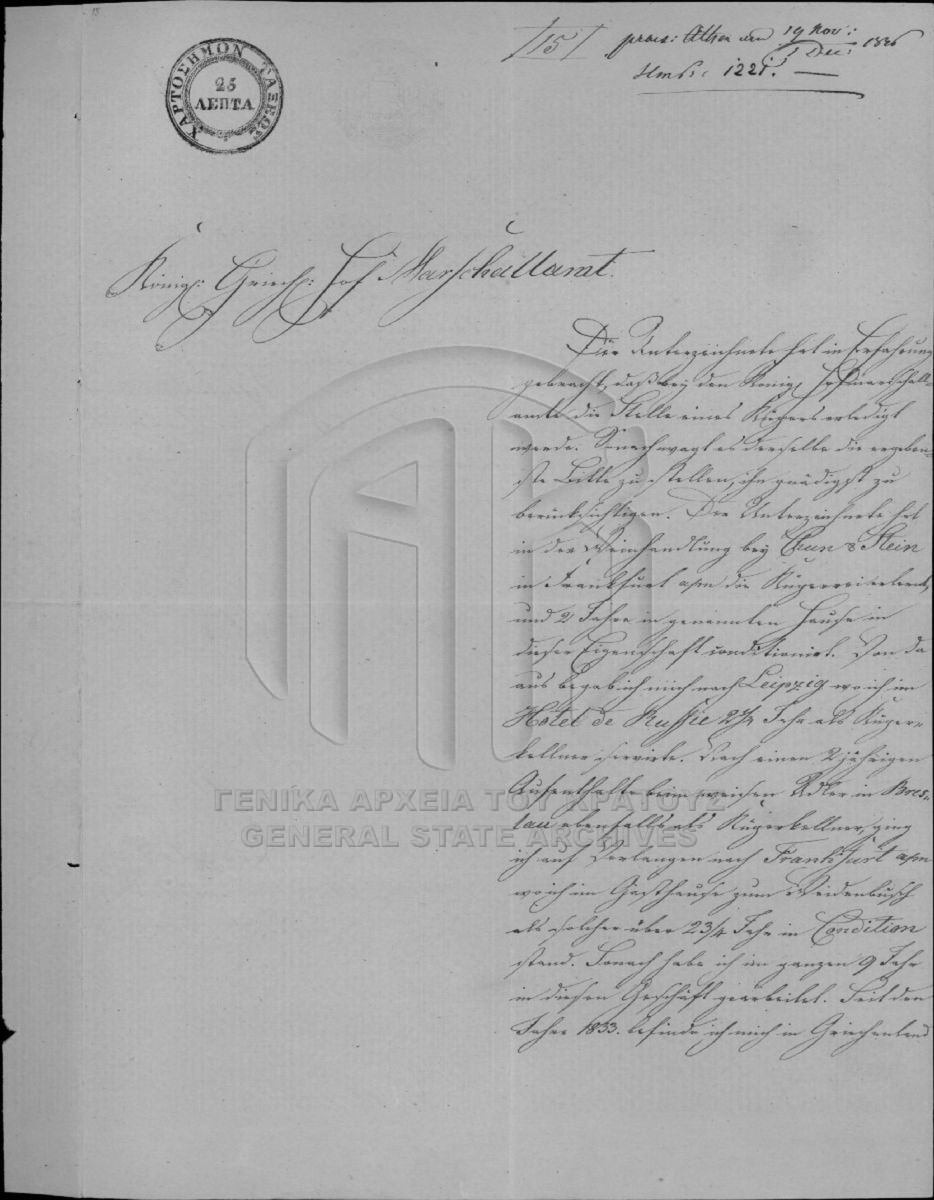 15
/15/
praes: Athen den 19 Nov: / 1 Dec: 1836
1221.
ΧΑΡΤΟΣΗΜΟΝ ΤΑΞΕΩΣ
25
ΛΕΠΤΑ
Königl: Griech: Hof Marschallamt.
Der Unterzeichnete hat in Erfahrung
gebracht, daß bey den Königl Hofmarschall-
amte die Stelle eines Küpers erledigt
werde. Sonach wagt es derselbe die ergeben-
ste Bitte zu stellen, ihn gnädigst zu
berücksichtigen. Der Unterzeichnete hat
in der Weinhandlung bey & Stein
in Frankfurt a/m die Küperrei erlernt,
und 2 Jahre in genannten Hause in
dieser Eigenschaft conditionirt. Von da
aus begab ich mich nach Leipzig wo ich im
Hôtel de Russie 2½ Jahr als Küper-
kellner servirte. Nach einen 2 jährigen
Aufenthalte beim weisen Adler in Bres-
lau ebenfalls als Küperkellner, ging
ich auf Verlangen nach Frankfurt a/m
wo ich im Gasthause zum Weidenbusch
als solcher über 2 3/4 Jahr in Condition
stand. Sonach habe ich im ganzen 9 Jahr
in diesen Geschäft gearbeitet. Seit den
Jahre 1833. befinde ich mich in Griechenland
ΓΕΝΙΚΑ ΑΡΧΕΙΑ ΤΟΥ ΚΡΑΤΟΥΣ
GENERAL STATE ARCHIVES